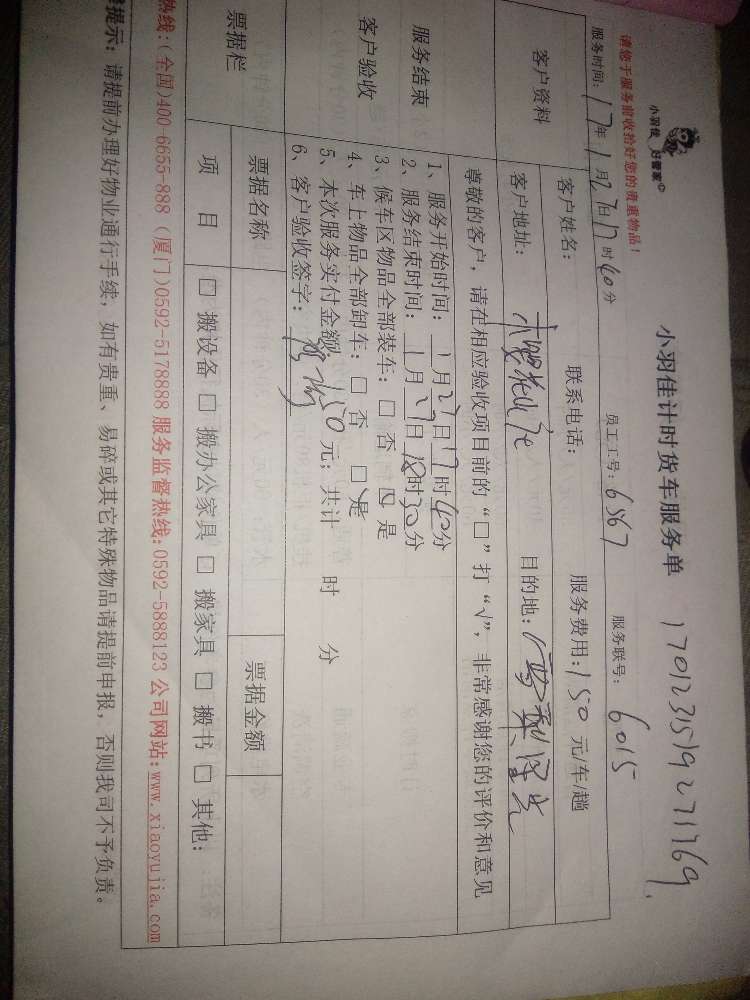 小羽佳 好管家
小羽佳计时货车服务单 1701231519271769
请您于服务前收拾好您的贵重物品！
服务时间：17年1月27日17时40分 员工工号：6567 服务联号：6015
客户资料
客户姓名： 联系电话： 服务费用：150元/车/趟
客户地址： 目的地：
尊敬的客户，请在相应验收项目前的“□”打“√”，非常感谢您的评价和意见
服务结束
客户验收
1、服务开始时间：1月27日17时40分
2、服务结束时间：1月27日18时30分
3、候车区物品全部装车：□否 □是
4、车上物品全部卸车：□否 □是
5、本次服务实付金额：150元；共计 时 分
6、客户验收签字：
票据栏
票据名称 票据金额
项 目 □搬设备 □搬办公家具 □搬家具 □搬书 □其他：
热线：(全国)400-6655-888 (厦门)0592-5178888 服务监督热线：0592-5888123 公司网站：www.xiaoyujia.com
提示：请提前办理好物业通行手续，如有贵重、易碎或其它特殊物品请提前申报，否则我司不予负责。